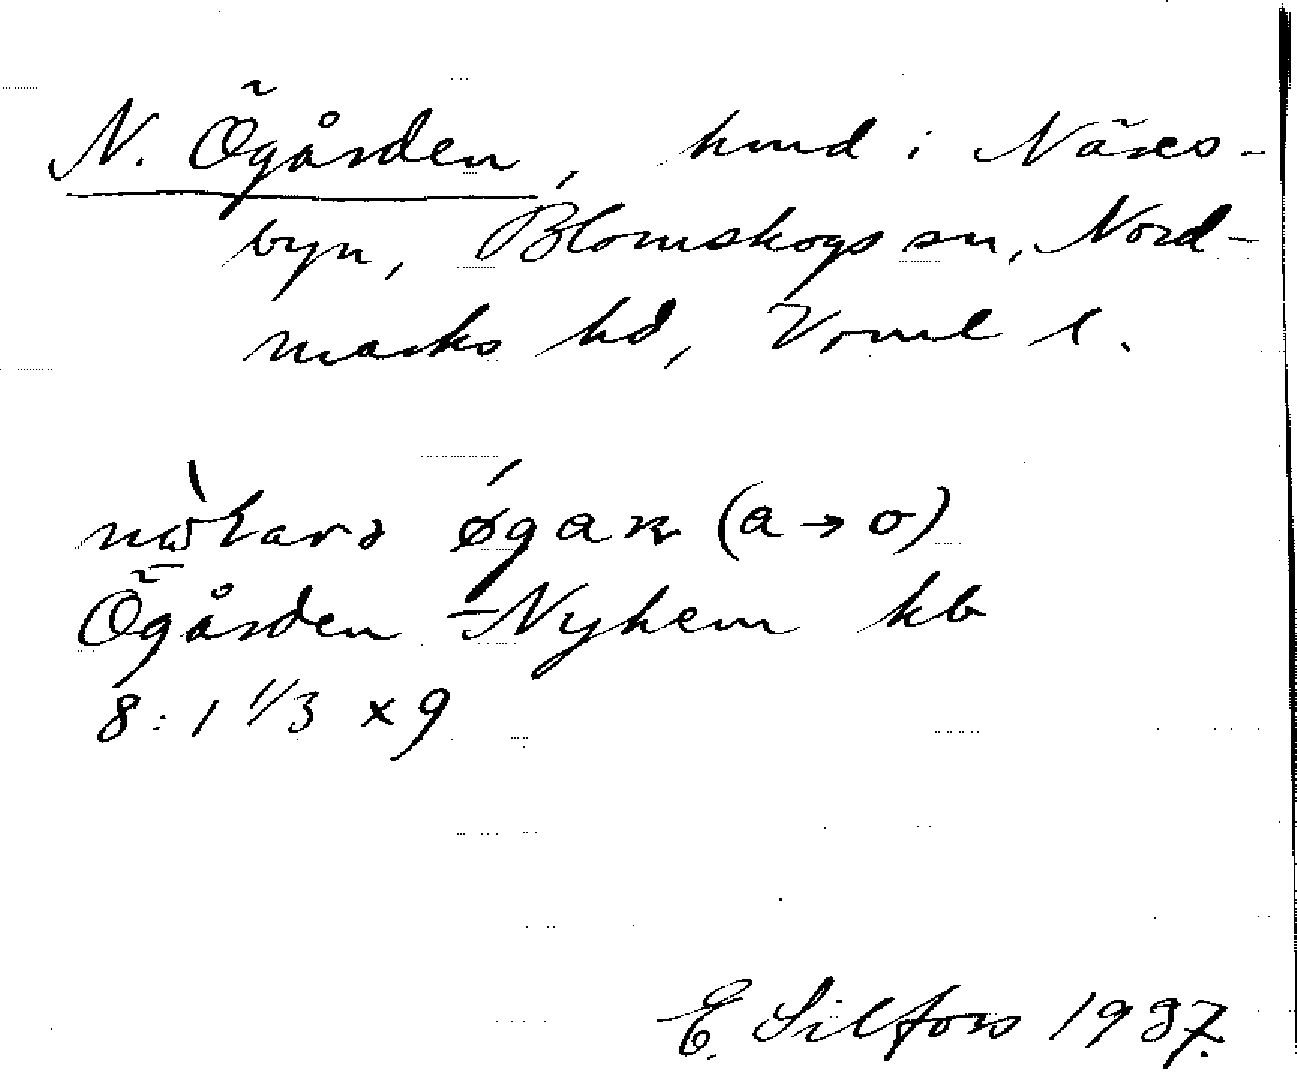 N. Ögården, hmd i Näres-
byn, Blomskogs sn, Nord-
marks hd, Vrml l.
øgaɳ (a → o)
Ögården - Nyhem kb
8:1 1/3 x 9
E. Silfors 1937.